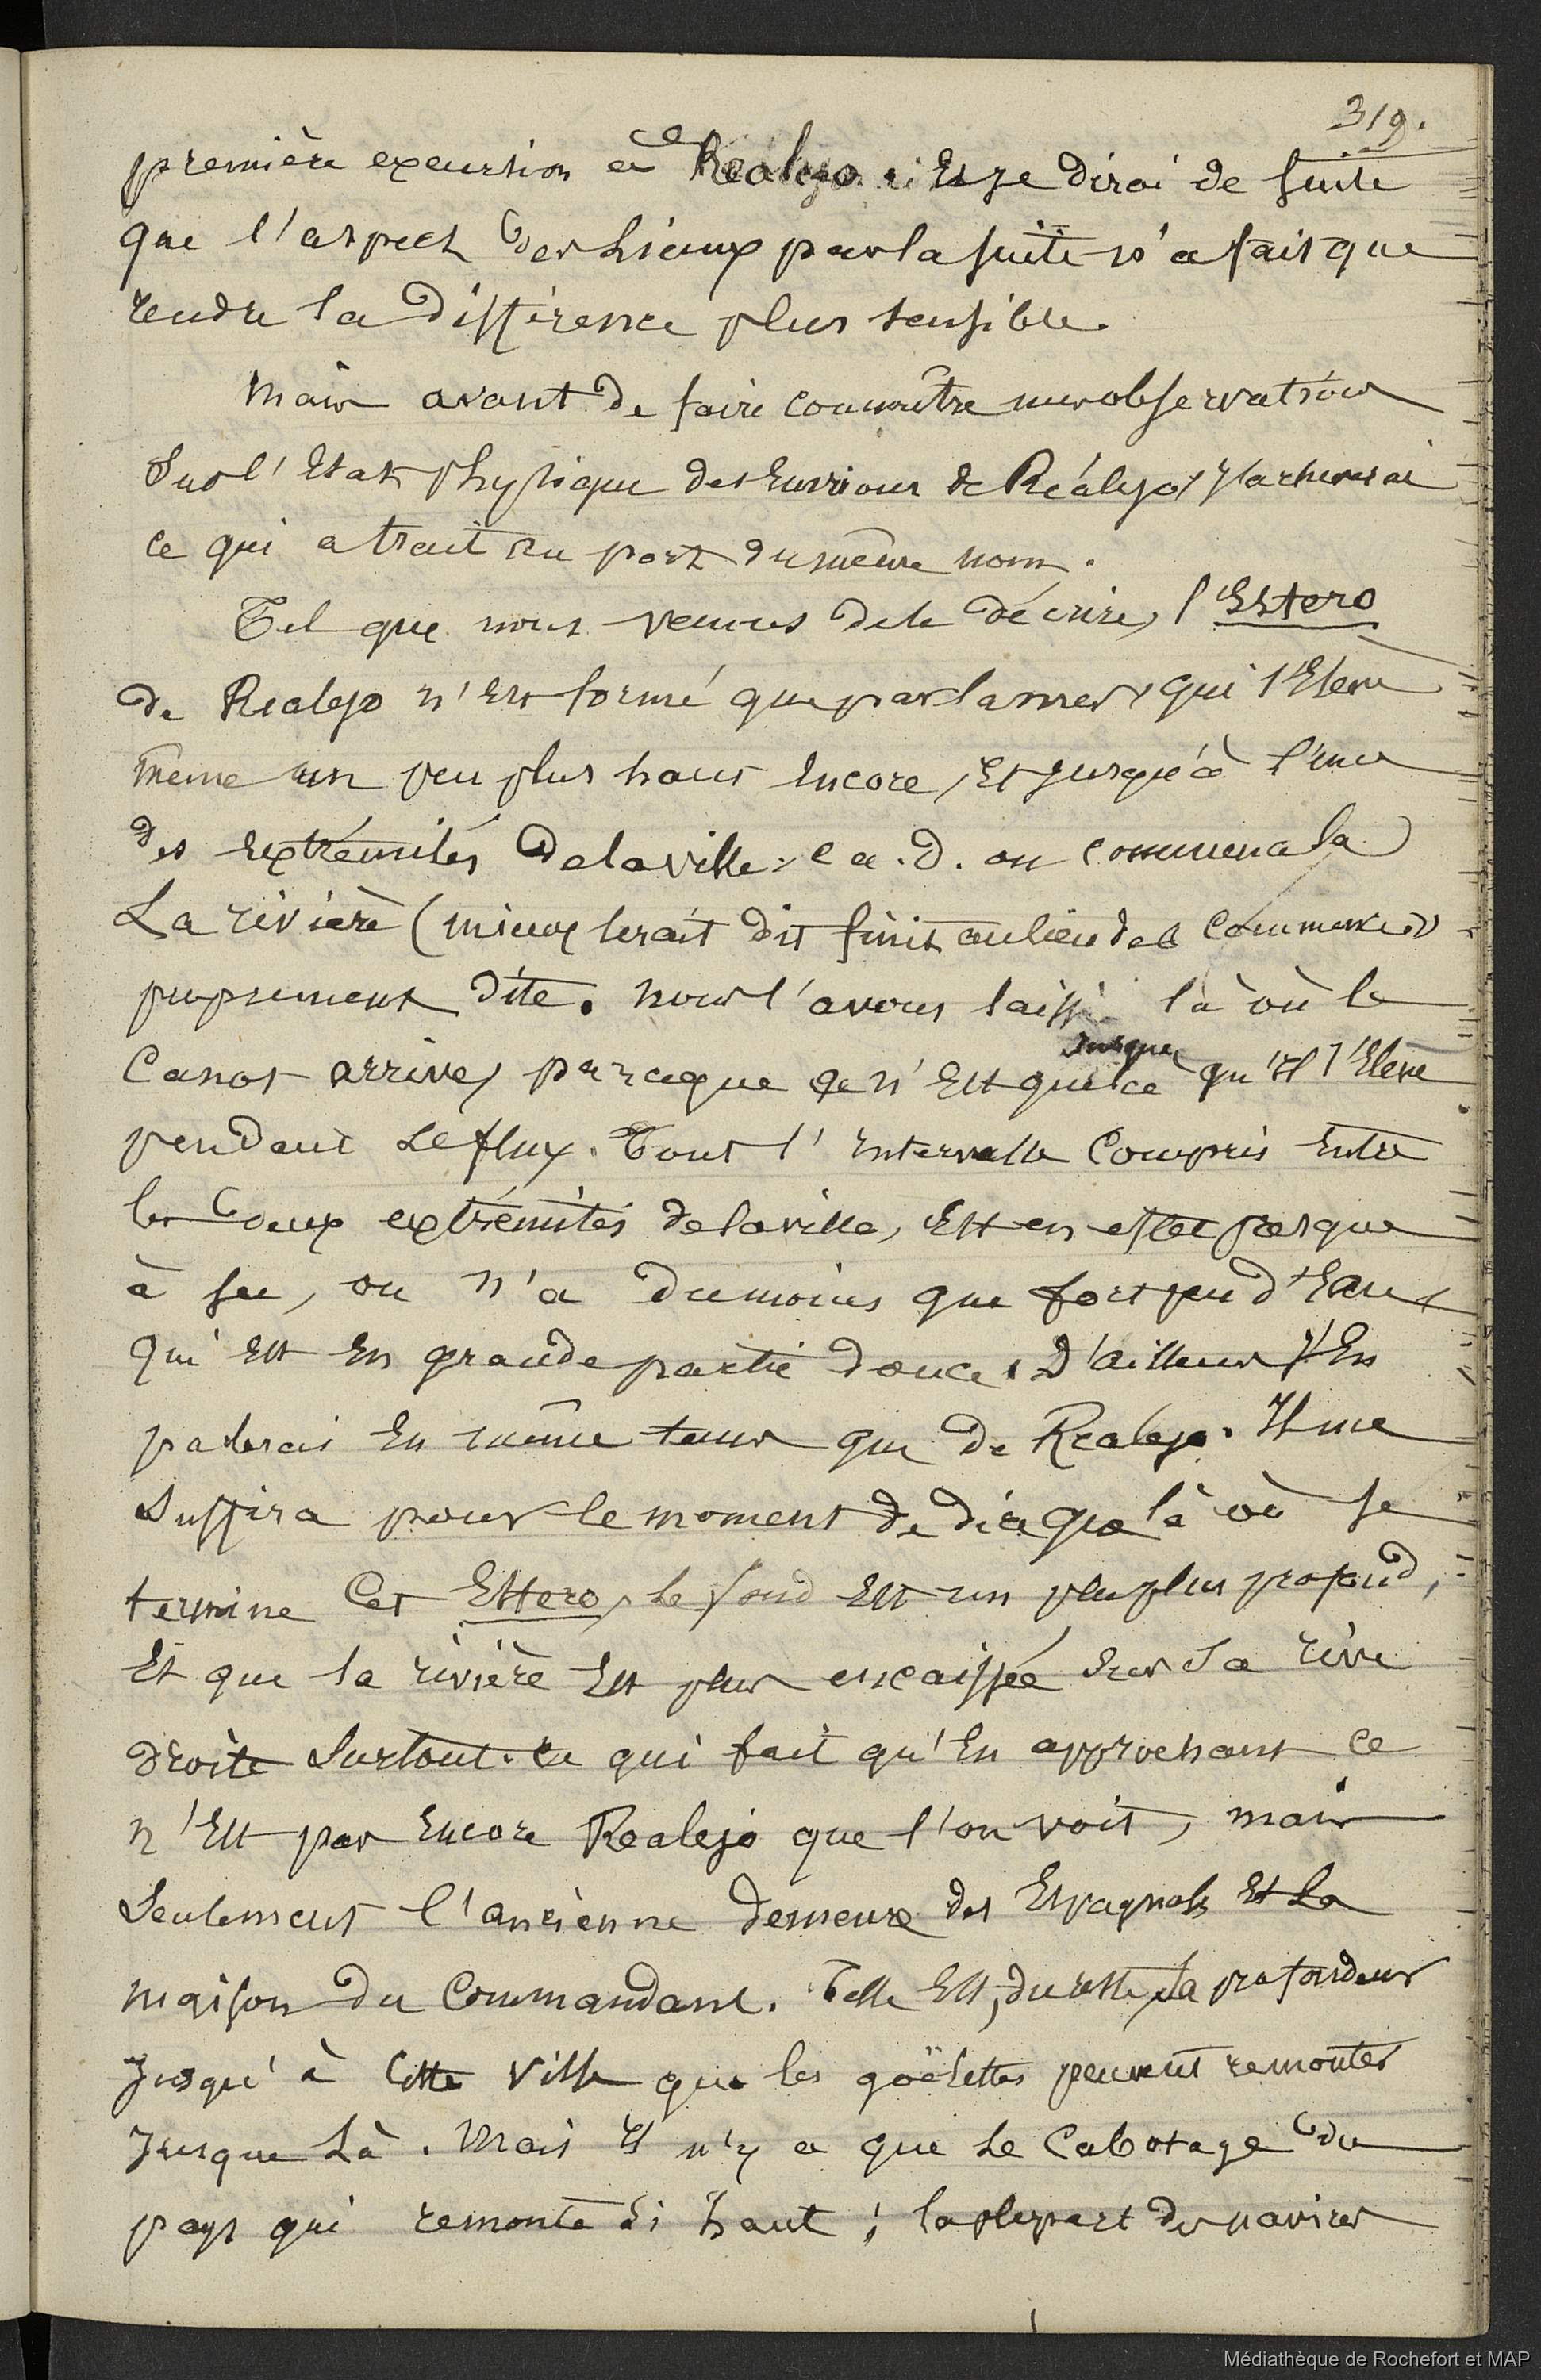 319.
première excursion à Realejo. Et je dirai de suite
que l'aspect des lieux par la suite n'a fait que
rendre la différence plus sensible.
Mais avant de faire connaître mes observations
sur l'Etat physique des Environs de Réalejo, j'acheverai
ce qui a trait au port du même nom.
Tel que nous venons de le décrire, l'Estero
de Realejo n'est formé que par la mer, qui s'Elève
même un peu plus haut Encore, Et jusqu'à l'une
des Extrémités de la ville, c a. d. ou commence la
La rivière (mieux serait dit finit au lieu de commence)
proprement dite. Nous l'avons laissé là où le
Canot arrive, parceque ce n'Est que jusque là qu'Il s'Elève
pendant Le flux. Tout l'Intervalle Compris Entre
les deux extrémités de la ville, Est en effet presque
à sec, ou n'a du moins que fort peu d'Eau,
qui Est En grande partie douce. D'ailleurs j'En
parlerai En même tems que de Realejo. Il me
suffira pour le moment de dire que là où se
termine Cet Estero, le fond Est un peu plus profond,
Et que la rivière Est plus encaissée sur sa rive
droite Surtout. Ce qui fait qu'En approchant ce
n'Est pas Encore Realejo que l'on voit, mais
Seulement l'ancienne demeure des Espagnols Et La
maison du Commandant. Telle Est, du reste, la profondeur
Jusqu'à Cette Ville que les goëlettes peuvent remonter
Jusque Là. Mais Il n'y a que Le Cabotage du
pays qui remonte Si haut ; la plupart des navires
Médiathèque de Rochefort et MAP